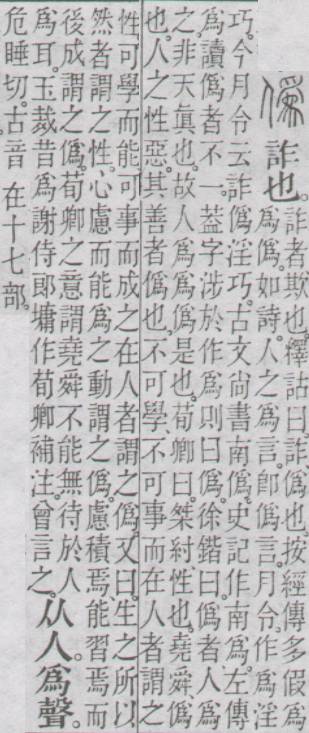 僞 詐也。
詐者欺也。釋詁曰。詐、僞也。按經傳多假爲
爲僞。如詩。人之爲言。卽僞言。月令。作爲淫
巧。今月令云詐僞淫巧。古文尙書南僞。史記作南爲。左傳
爲讀僞者不一。葢字涉於作爲則曰僞。徐鍇曰。僞者人爲
之。非天眞也。故人爲爲僞是也。荀卿曰。桀紂性也。堯舜僞
也。人之性惡。其善者僞也。不可學、不可事而在人者謂之
性。可學而能、可事而成之在人者謂之僞。又曰。生之所以
然者謂之性。心慮而能爲之動謂之僞。慮積焉能習焉而
後成謂之僞。荀卿之意謂堯舜不能無待於人
爲耳。玉裁昔爲謝侍郎墉作荀卿補注。曾言之。
从人爲聲。
危睡切。古音在十七部。